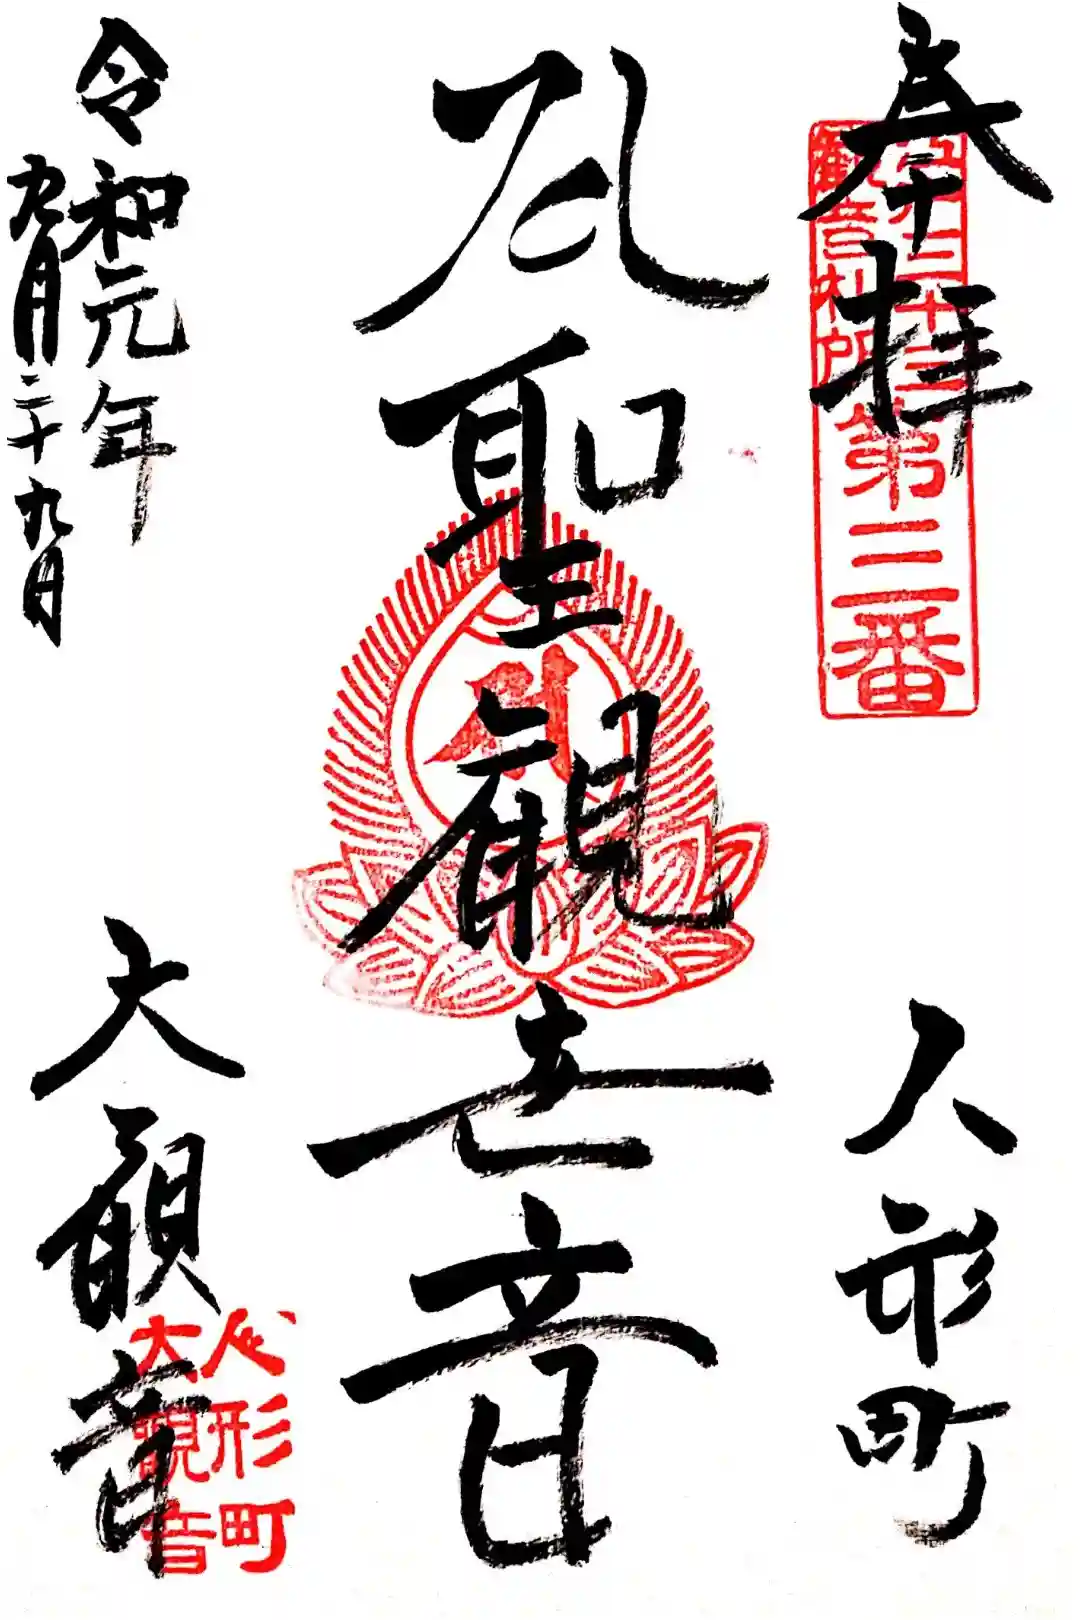 奉拝
江戸三十三
観音札所
第三番
人形町
聖観世音
令和元年
九月二十九日
大観音
人形町
大観音